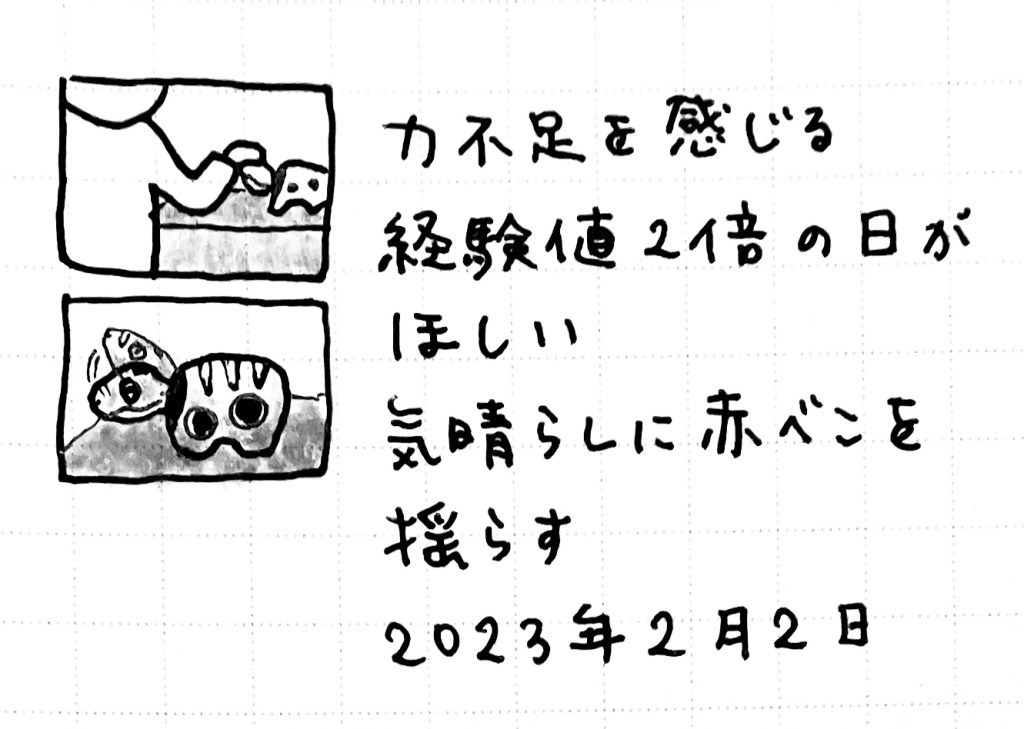 力不足を感じる
経験値2倍の日が
ほしい
気晴らしに赤べこを
揺らす
2023年2月2日